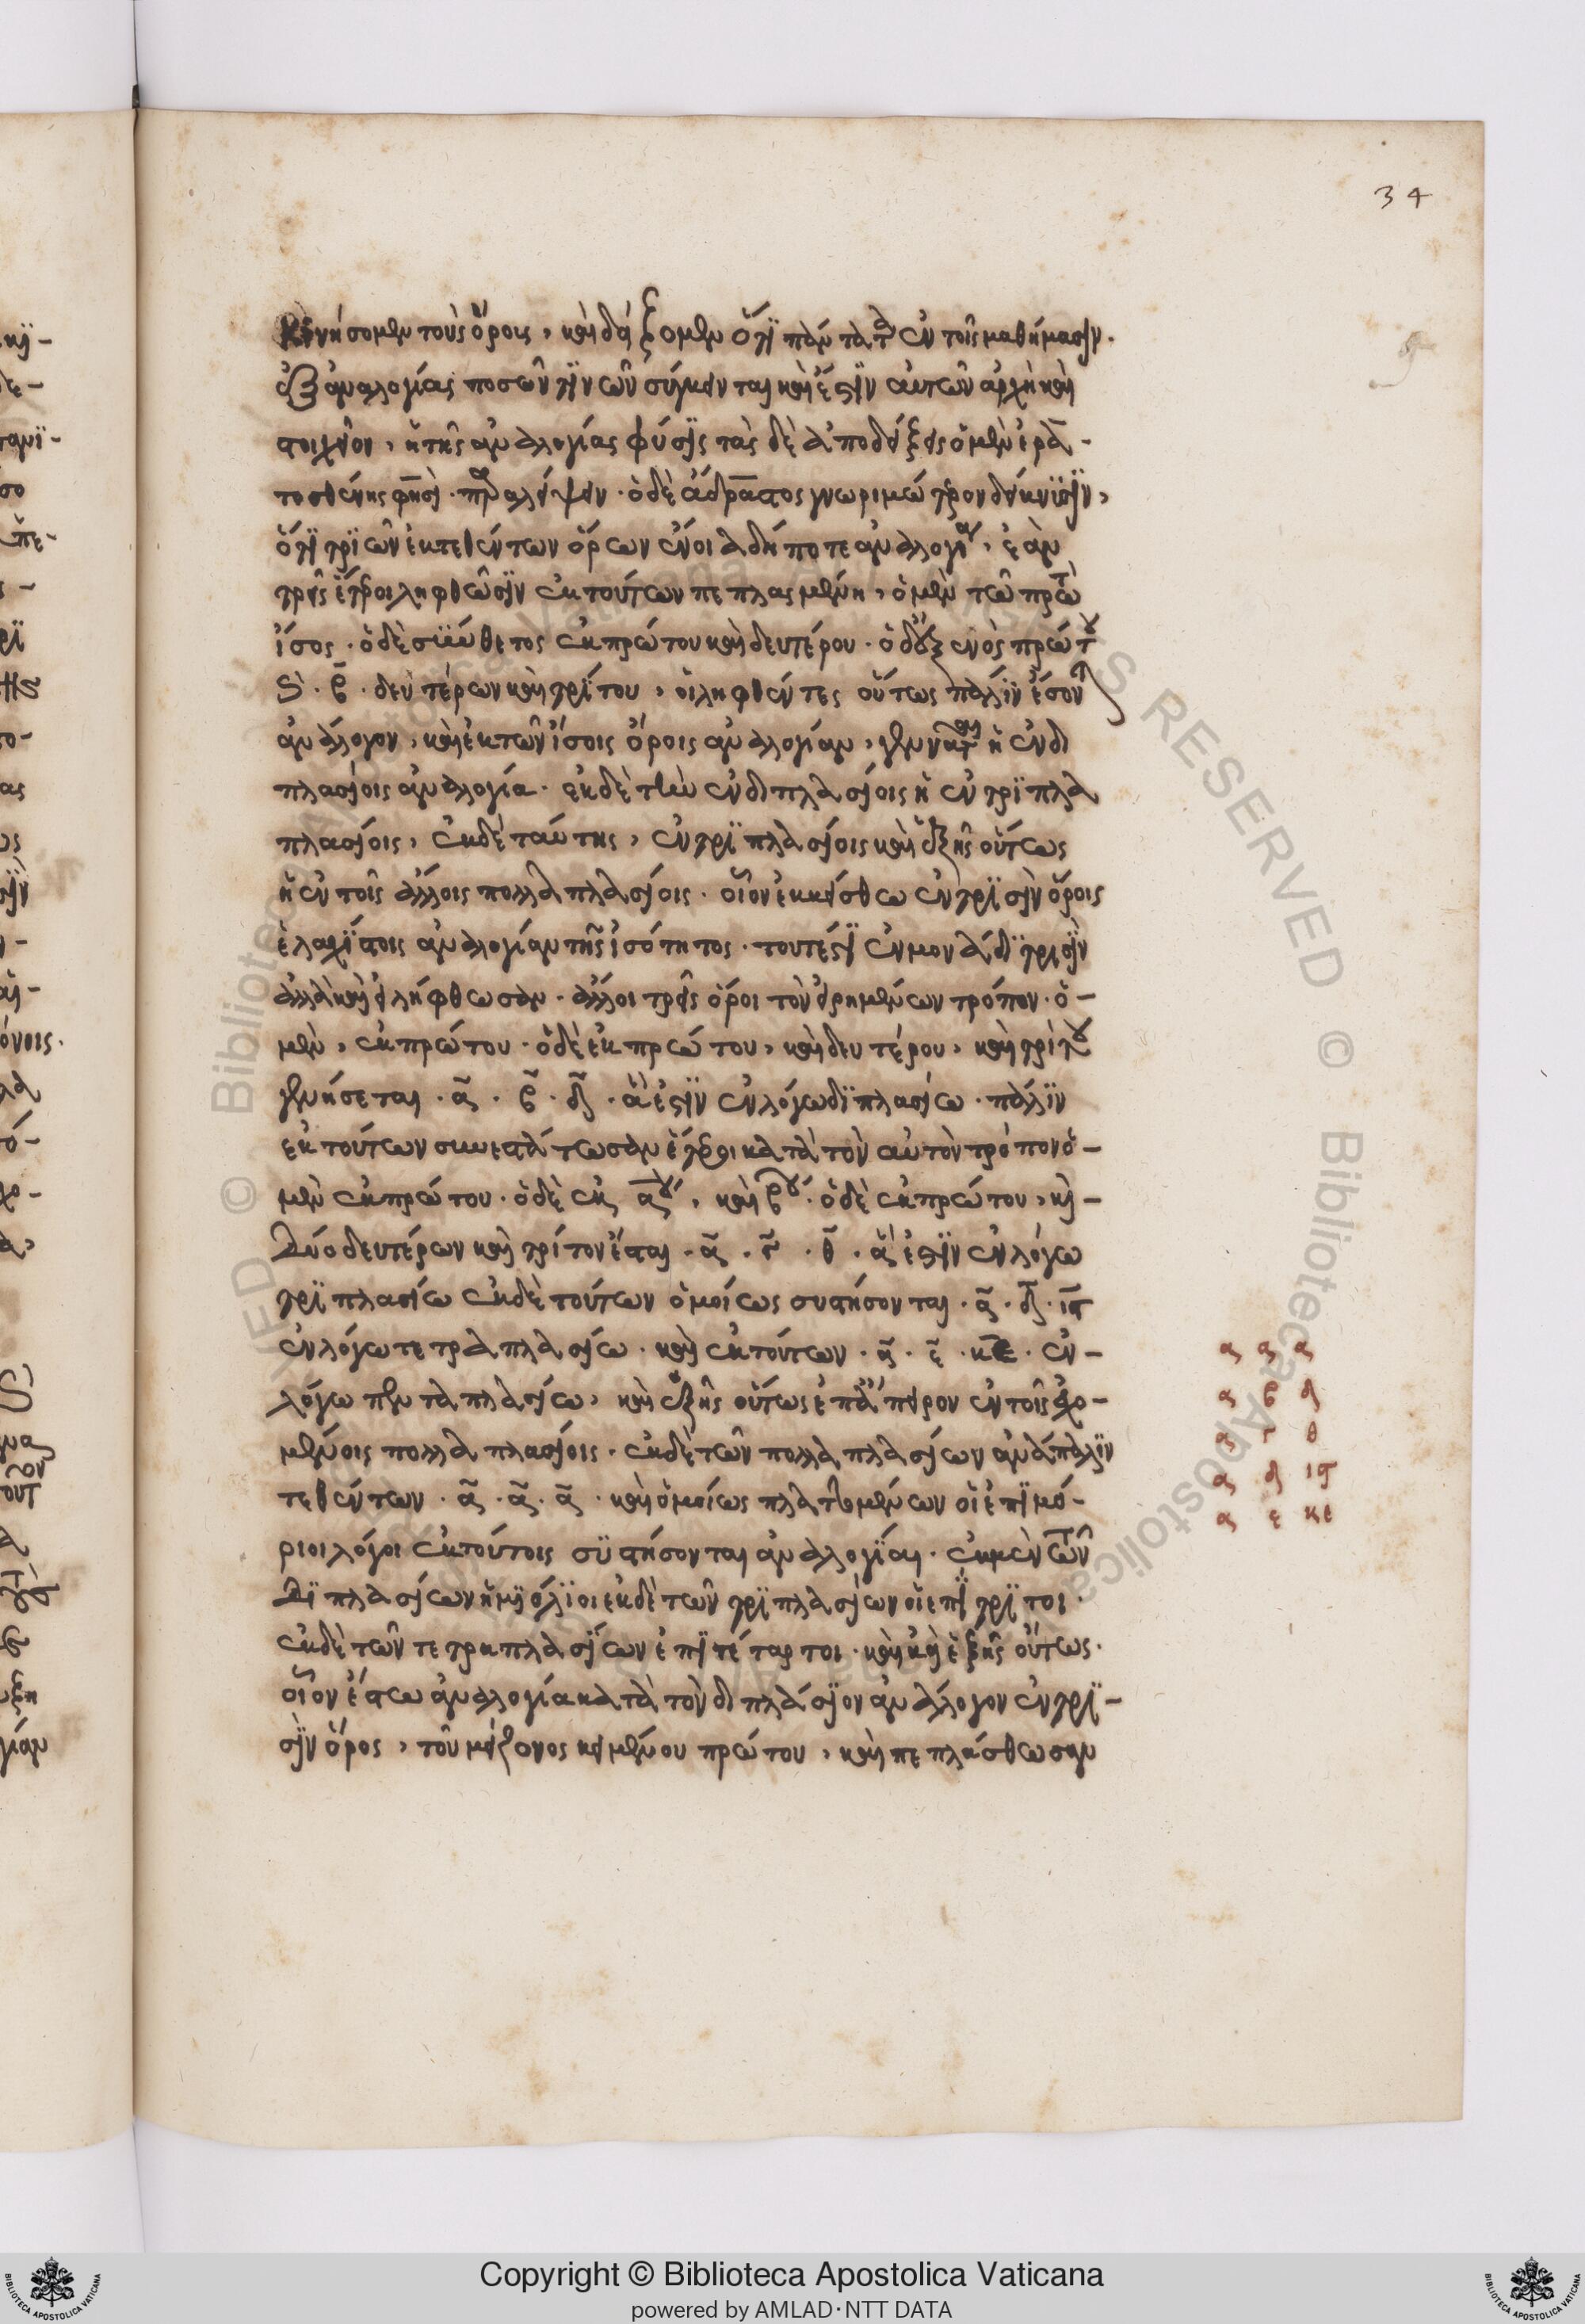 34
κινήσομεν τοὺς ὅρους, καὶ δείξομεν ὅτι πάντα τὰ ἐν τοῖς μαθήμασιν.
ἐξ ἀναλογίας ποσῶν τινῶν σύγκεινται καὶ ἔστιν αὐτῶν ἀρχὴ καὶ
στοιχεῖον, ἡ τῆς ἀναλογίας φύσις τὰς δὲ ἀποδείξεις ὁ μὲν ἐρα-
τοσθένης φησὶ . παραλείψειν . ὁ δὲ ἄδραστος γνωριμώτερον δείκνυσιν,
ὅτι τριῶν ἐκτεθέντων ὅρων ἐν οἱαδήποτε ἀναλογίᾳ, ἐὰν
τρεῖς ἕτεροι ληφθῶσιν ἐκ τούτων πεπλασμένη, ὁ μὲν τῶ πρώτω
ἴσος . ὁ δὲ σύνθετος ἐκ πρώτου καὶ δευτέρου . ὁ δ' ἐξ ἑνὸς πρώτου
β . δευτέρων καὶ τρίτου, οἱ ληφθέντες οὕτως πάλιν ἔσονται
ἀνάλογον, καὶ ἐκ τῶν ἴσοις ὅροις ἀναλογίαν, γεννᾶται ἡ ἐν δι
πλασίοις ἀναλογία . ἐκ δὲ τὴν ἐν διπλασίοις ἡ ἐν τριπλα
πλασίοις, ἐκ δὲ ταύτης, ἐν τριπλασίοις καὶ ἑξῆς οὕτως
ἡ ἐν τοῖς ἄλλοις πολλαπλασίοις . οἷον ἐκκείσθω ἐν τρισὶν ὅροις
ἐλαχίστοις ἀναλογίαν τῆς ἰσότητος . τουτέστιν ἐν μονάδι τρισὶν
ἀλλὰ καὶ εἰλήφθωσαν . ἄλλοι τρεῖς ὅροι τὸν εἰρημένων τρόπον . ὁ-
μὲν, ἐκ πρώτου . ὁ δὲ ἐκ πρώτου, καὶ δευτέρου, καὶ τρίτου
γενήσεται . α . β . δ . ἅ ἐστιν ἐν λόγω διπλασίω . πάλιν
ἐκ τούτων συνεστάτωσαν ἕτεροι κατὰ τὸν αὐτὸν τρόπον ὁ-
μὲν ἐκ πρώτου . ὁ δὲ ἐκ αου, καὶ βου . ὁ δὲ ἐκ πρώτου, κὶ-
δύο δευτέρων καὶ τρίτον ἔσται . α . γ . θ . ἅ ἐστιν ἐν λόγω
τριπλασίω ἐκ δὲ τούτων ὁμοίως συστήσονται . α . δ . ις
ἐν λόγω τετραπλασίω . καὶ ἐκ τούτων . α . ε . κε . ἐν-
λόγω πενταπλασίω, καὶ ἑξῆς οὕτως ἐπ' ἄπειρον ἐν τοῖς ἐχο-
μένοις πολλαπλασίοις . ἐκ δὲ τῶν πολλαπλασίων ἀνάπαλιν
τεθέντων . α . α . α . καὶ ὁμοίως πλαττομένων οἱ ἐπιμό-
ριοι λόγοι ἐκ τούτοις συστήσονται ἀναλογίαι . ἐκ μὲν τῶν
διπλασίων ἡμιόλιοι ἐκ δὲ τῶν τριπλασίων οἱ ἐπίτριτοι .
ἐκ δὲ τῶν τετραπλασίων ἐπιτέταρτοι . καὶ ἀεὶ ἑξῆς οὕτως .
οἷον ἔστω ἀναλογία κατὰ τὸν διπλάσιον ἀνάλογον ἐν τρι-
σὶν ὅρος, τοῦ μείζονος κειμένου πρώτου, καὶ πεπλάσθωσαν
α α α
α β δ
α γ θ
α δ ις
α ε κε
Copyright © Biblioteca Apostolica Vaticana
powered by AMLAD·NTT DATA